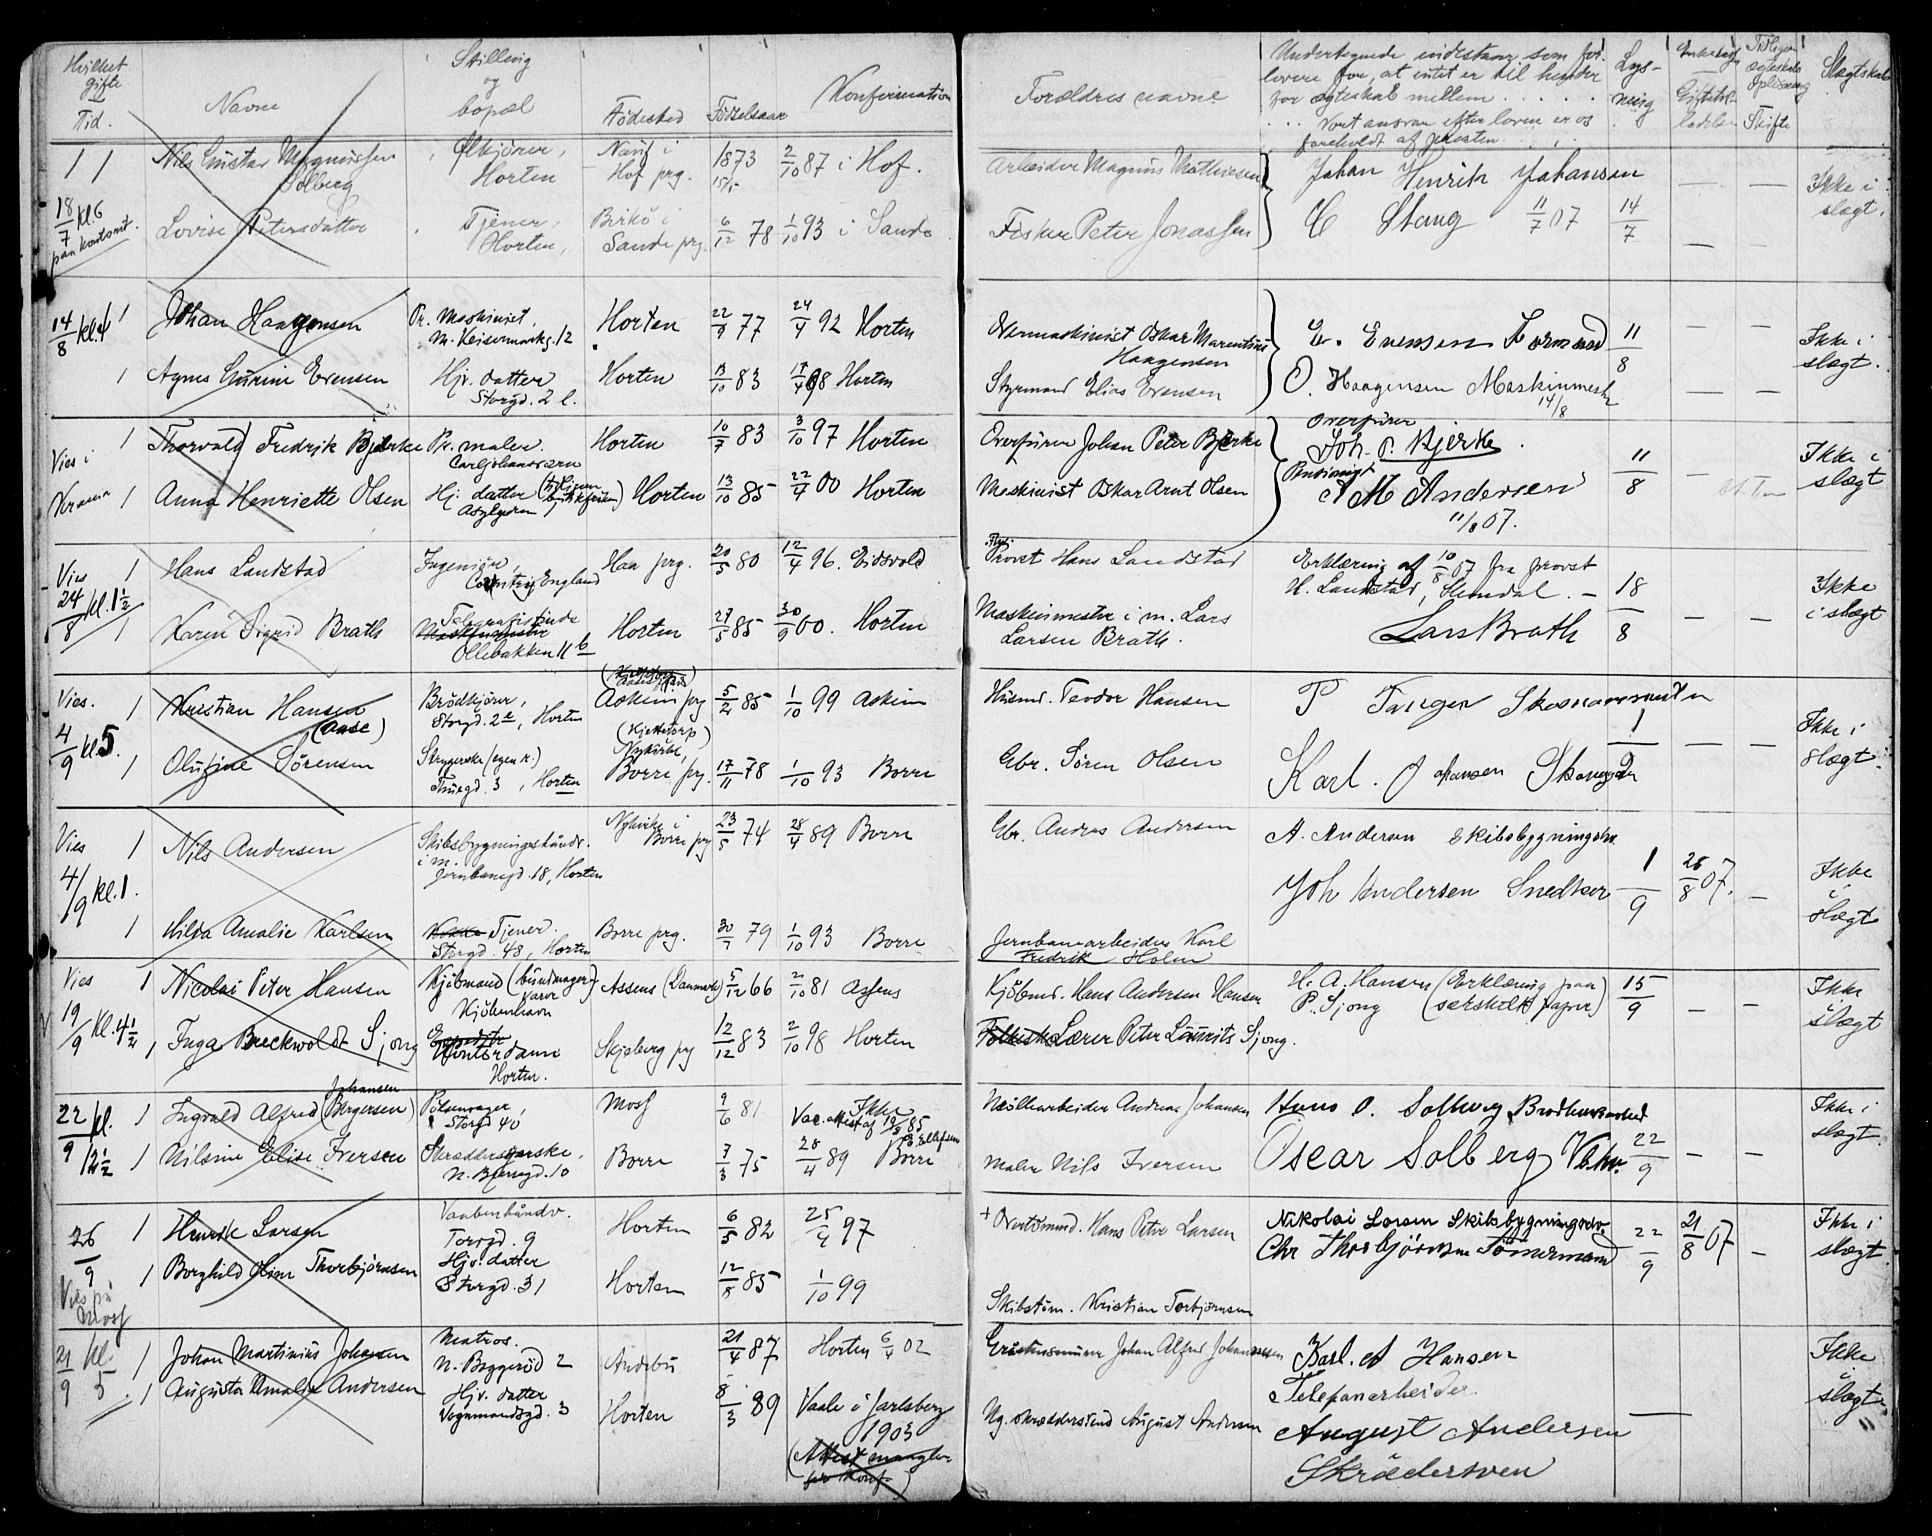 Hvilket gifte
Tid.
Navne
Stilling og bopæl
Fødested
Fødselsaar
Konfirmation
Forældres navne
Undertegnede indestaar som for-
lovere for, at intet er til hinder
for ægteskab mellem . . . . .
. . . Vort ansvar efter loven er os
foreholdt af presten . . .
Lys-
ning
Tidligere ægteskabs opløsning
Skifte
Slægtskab
1 1 Nils Gustav Magnussen Solberg
Ølkjører, Horten
Hof prg.
1873 15/5
2/10 87 i Hof.
Arbeider Magnus Mathiesen
Johan Henrik Johansen
Ikke i slægt.
18/7 kl. 6
paa kontoret.
Lovise Petersdatter
Tjener, Horten,
Sande prg.
6/12 78
1/10 93 i Sande
Fisker Peter Jonassen
C Stang 11/7 07
14/7
14/8 kl. 4
1 Johan Haagensen
Pr. Maskinist.
N. Keisermarksg. 12
Horten
22/9 77
24/4 92 Horten
Overmaskinist Oskar Marentius Haagensen
E. Evensen Formand
11/8
Ikke i slægt.
1 Agnes Gurine Evensen
Hjv. datter
Storgd. 2 l.
Horten
13/10 83
17/4 98 Horten
Styrmand Elias Evensen
O. Haagensen Maskinmester
14/8
Vies i
1 Thorvald Fredrik Bjerke
Pr. maler.
Carljohansværn
Horten
10/7 83
3/10 97 Horten
Overfürer Johan Peter Bjerke
Overfürer
Joh. P. Bjerke
11/8
Ikke i slægt
1 Anna Henriette Olsen
Hj. datter
Horten
13/10 85
22/4 00 Horten
Maskinist Oskar Arnt Olsen
A M Andersen
11/8 07.
Vies
24/8 kl. 1 1/2
1 Hans Landstad
Ingeniør,
Coventry England
Haa prg.
20/5 80
12/4 96. Eidsvold
Provst Hans Landstad
Erklæring af 10/8 07 fra provst
H. Landstad, Slemdal. –
18/8
Ikke i slægt
1 Karen Sigrid Brath
Telegrafistinde
Ollebakken 11 b
Horten
27/5 85
30/9 00. Horten
Maskinmester i m. Lars
Larsen Brath.
Lars Brath
Vies.
4/9 kl 5.
1 Kristian Hansen (Aase)
Brödkjører,
Storgd. 2 a, Horten
Askim prg
5/2 85
1/10 99 Askim
Husmd. Teodor Hansen
P Tangen Skomagermester
1/9
Ikke i slægt.
1 Olufine Sørensen
Strygerske (egen r.)
Thuegd. 3, Horten
Nykirke,
Borre prg.
17/11 78
1/10 93 Borre
Gbr. Sören Olsen
Karl. Johansen Skomager
Vies
4/9 kl. 1.
1 Nils Andersen
Skibsbygningshåndv.
i m.
Jernbanegd. 18, Horten
Nykirke i Borre prg
23/5 74
28/4 89 Borre
Gbr. Andreas Andersen
A. Anderson Skibsbygningshv.
Joh Andersen Snedker
1/9
28/8 07.
Ikke i slægt
1 Hilda Amalie Karlsen
Tjener.
Storgd. 48, Horten
Borre prg.
30/7 79
1/10 93 Borre
Jernbanearbeider Karl
Fredrik Holm
Vies
19/9 kl. 4 1/2
1 Nicolai Peter Hansen
Kjøbmand (buntmagervarer)
Kjöbenhavn
Assens (Danmark)
5/12 66
2/10 81 Assens
Kjöbmd. Hans Andersen Hansen
H. A. Hansen (Erklæring paa
P. Sjong (særskilt papir)
15/9
Ikke i slægt
1 Inga Breckwoldt Sjong
Kontordame
Horten.
Skjeberg prg
12/12 83
2/10 98 Horten
Lærer Peter Lauritz Sjong.
22/9 kl. 12 1/2
1 Ingvald Alfred (Bergersen) Johansen
Pölsemager,
Storgd 40
Moss
9/6 81
Ikke
Vac. attest af 19/9 85
Möllearbeider Andreas Johansen
Hans O. Solberg Brödhandler
22/9
Ikke i slægt
1 Nilsine Elise Iversen
N. Bjerregd. 10
Borre
7/3 75
28/4 89 Borre
Maler Nils Iversen
Oscar Solberg
26/9
Vies på Moss
1 Henrik Larsen
Vaabenhåndv.
Torvgd. 9
Horten
6/5 82
25/4 97
Hans Peter Larsen
Nikolai Larsen Skibsbygningsdv
Chr Thorbjörnsen Tömmermand
22/9
21/8 07
Ikke i slægt
1 Borghild Oline Thorbjørnsen
Hjv. datter
Storgd. 31
Horten
12/8 85
1/10 99
Skibstöm. Kristian Torbjörnsen
21/9 kl. 5
1 Johan Martinius Johansen
Matros.
N. Byggeröd 2
Andebu
21/4 87
Horten 6/4 02
Johan Alfred Johannessen
Karl. A Hansen
Telefonarbeider.
Ikke i slægt
1 Augusta Amalie Andersen
Hjv. datter
Vognmandsgd. 3
Horten
8/3 89
Vaale i Jarlsberg
1903
(Attest mangler
for konf.)
Ug. skræddersvend August Andersen
August Andersen
Skrädersven